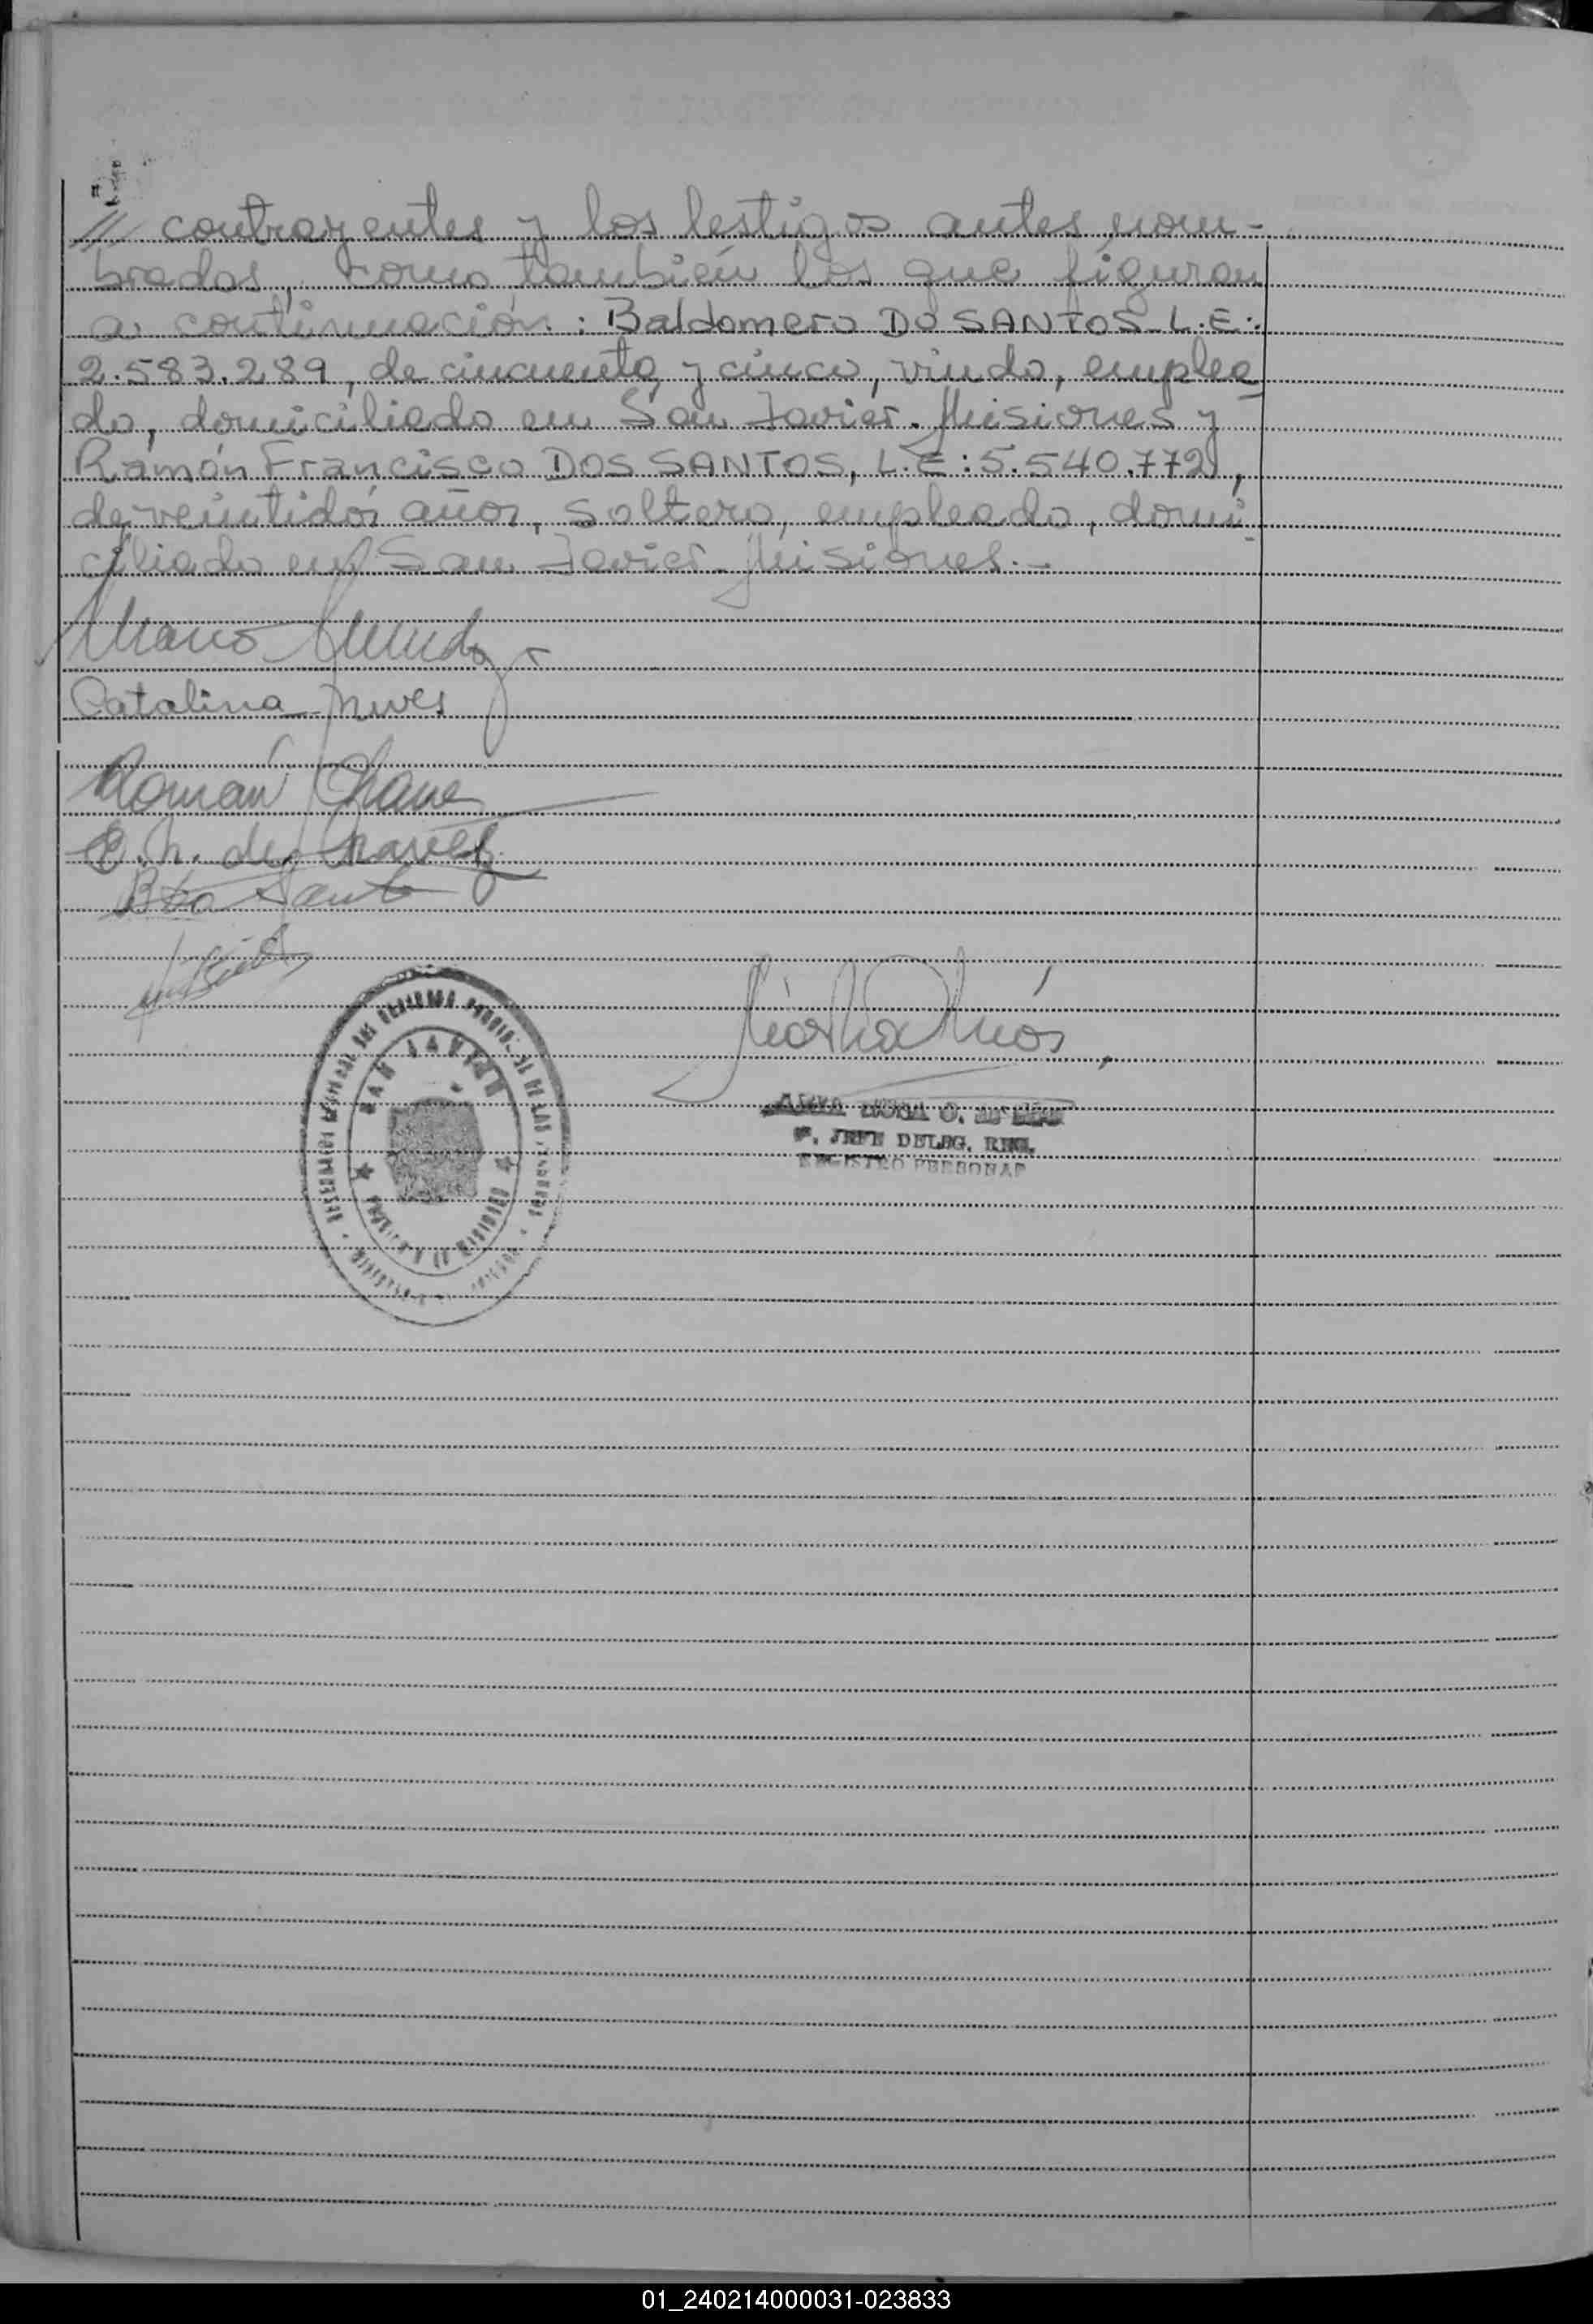 /// contrayentes y los testigos antes nom-
brados, como también los que figuran
a continuación: Baldomero DO SANTOS L.E:
2.583.289, de cincuenta y cinco, viudo, emplea
do, domiciliado en San Javier. Misiones y
Ramón Francisco DOS SANTOS, L.E: 5.540.772,
de veintidós años, soltero, empleado, domi
ciliado en San Javier. Misiones.-
Catalina Nuves
Román Chave
E. N. de Chavez
SAN JAVIER
O. DE
P. JEFE DELEG. REG.
REGISTRO PERSONAS
01_240214000031-023833